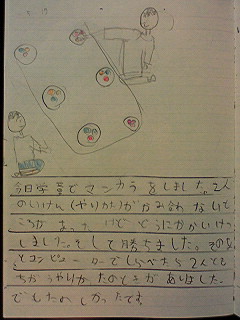 今日学童でマンカラをしました。2人
のいけん(やりかた)がかみ合わないと
ころがあったけどどうにかかいけつ
しました。そして勝ちました。そのあ
とコンピューターでしらべたら2人とも
ちがうやりかたのときがありました。
でもたのしかったです。